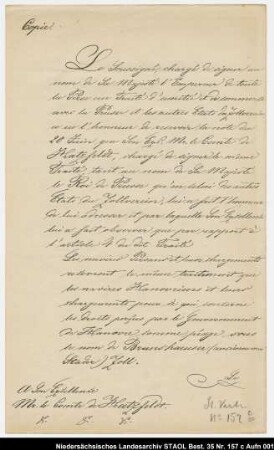 Copie.
Le Soussigné, chargé de signer au
nom de Sa Majesté l'Empereur de toute
la Perse un Traité d'amitié et de commerce
avec la Prusse et les autres Etats du Zollverein
a eu l'honneur de recevoir la note du
20 Juin que Son Exc. Mr. le Comte de
Hatzfeldt, chargé de signer le même
Traité, tant au nom de Sa Majesté
le Roi de Prusse qu'au celui des autres
Etats du Zollverein, lui a fait l'honneur
de lui adresser et par laquelle Son Excellence
lui a fait observer que par rapport à
l'article 4 du dit Traité
Les navires Persans et leurs chargements
recevront le même traitement que
les navires Hanovriens et leurs
chargements pour ce qui concerne
les droits perçus par le Gouvernement
de Hanovre comme péage, sous
le nom de Brunshausen (anciennement
Stader) Zoll.
A Son Excellence
Mr. le Comte de Hatzfeldt
No 157
Niedersächsisches Landesarchiv STAOL Best. 35 Nr. 157 c Aufn 001